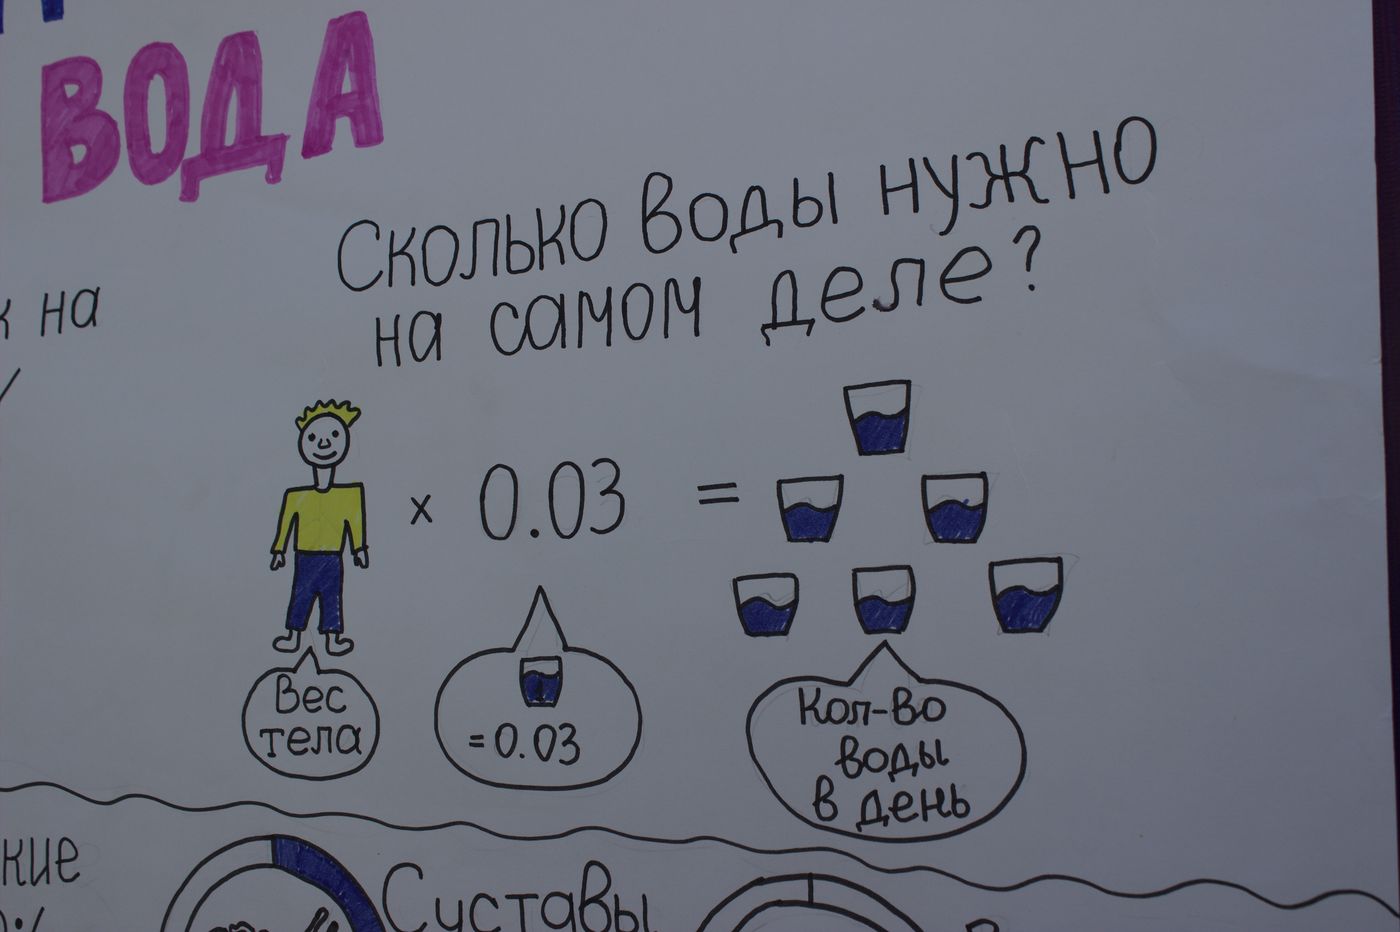 ВОДА
Сколько воды нужно
на самом деле?
на
x 0.03 =
Вес
тела
= 0.03
Кол-во
воды
в день
кие
Суставы